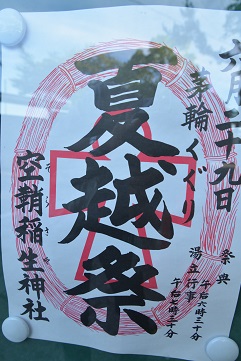 六月二十九日
祭典 午后六時三十分
湯立行事 午后七時三十分
茅輪くぐり
夏越祭
そらさや
空鞘稲生神社